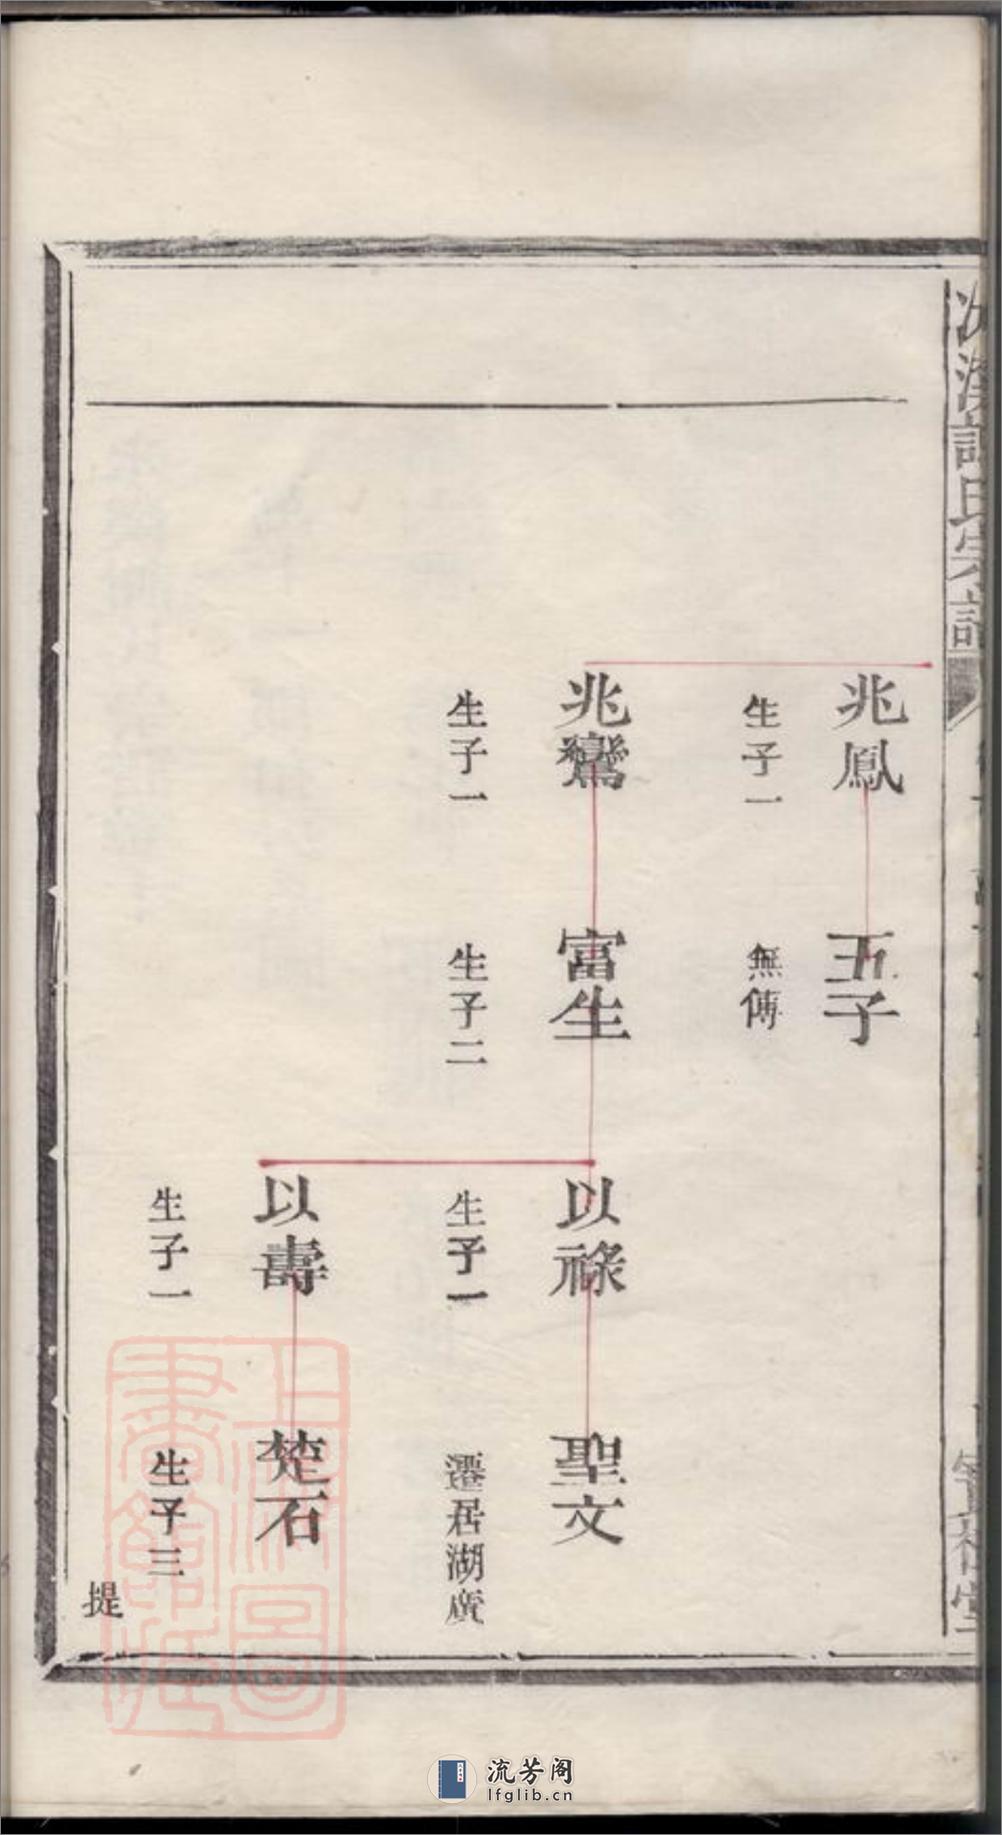 兆鳳
生子一
五子
無傳
兆鸞
生子一
富生
生子二
以祿
生子一
聖文
遷居湖廣
以壽
生子一
楚石
生子三
提
上海圖
書館藏
流芳阁
lfglib.cn